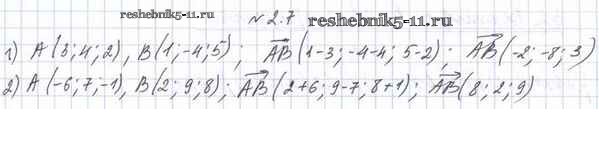 reshebnik5-11.ru
№2.7 reshebnik5-11.ru
1) A(3; 4; 2), B(1; -4; 5); AB(1-3; -4-4; 5-2); AB(-2; -8; 3)
2) A(-6; 7; -1), B(2; 9; 8); AB(2+6; 9-7; 8+1); AB(8; 2; 9)